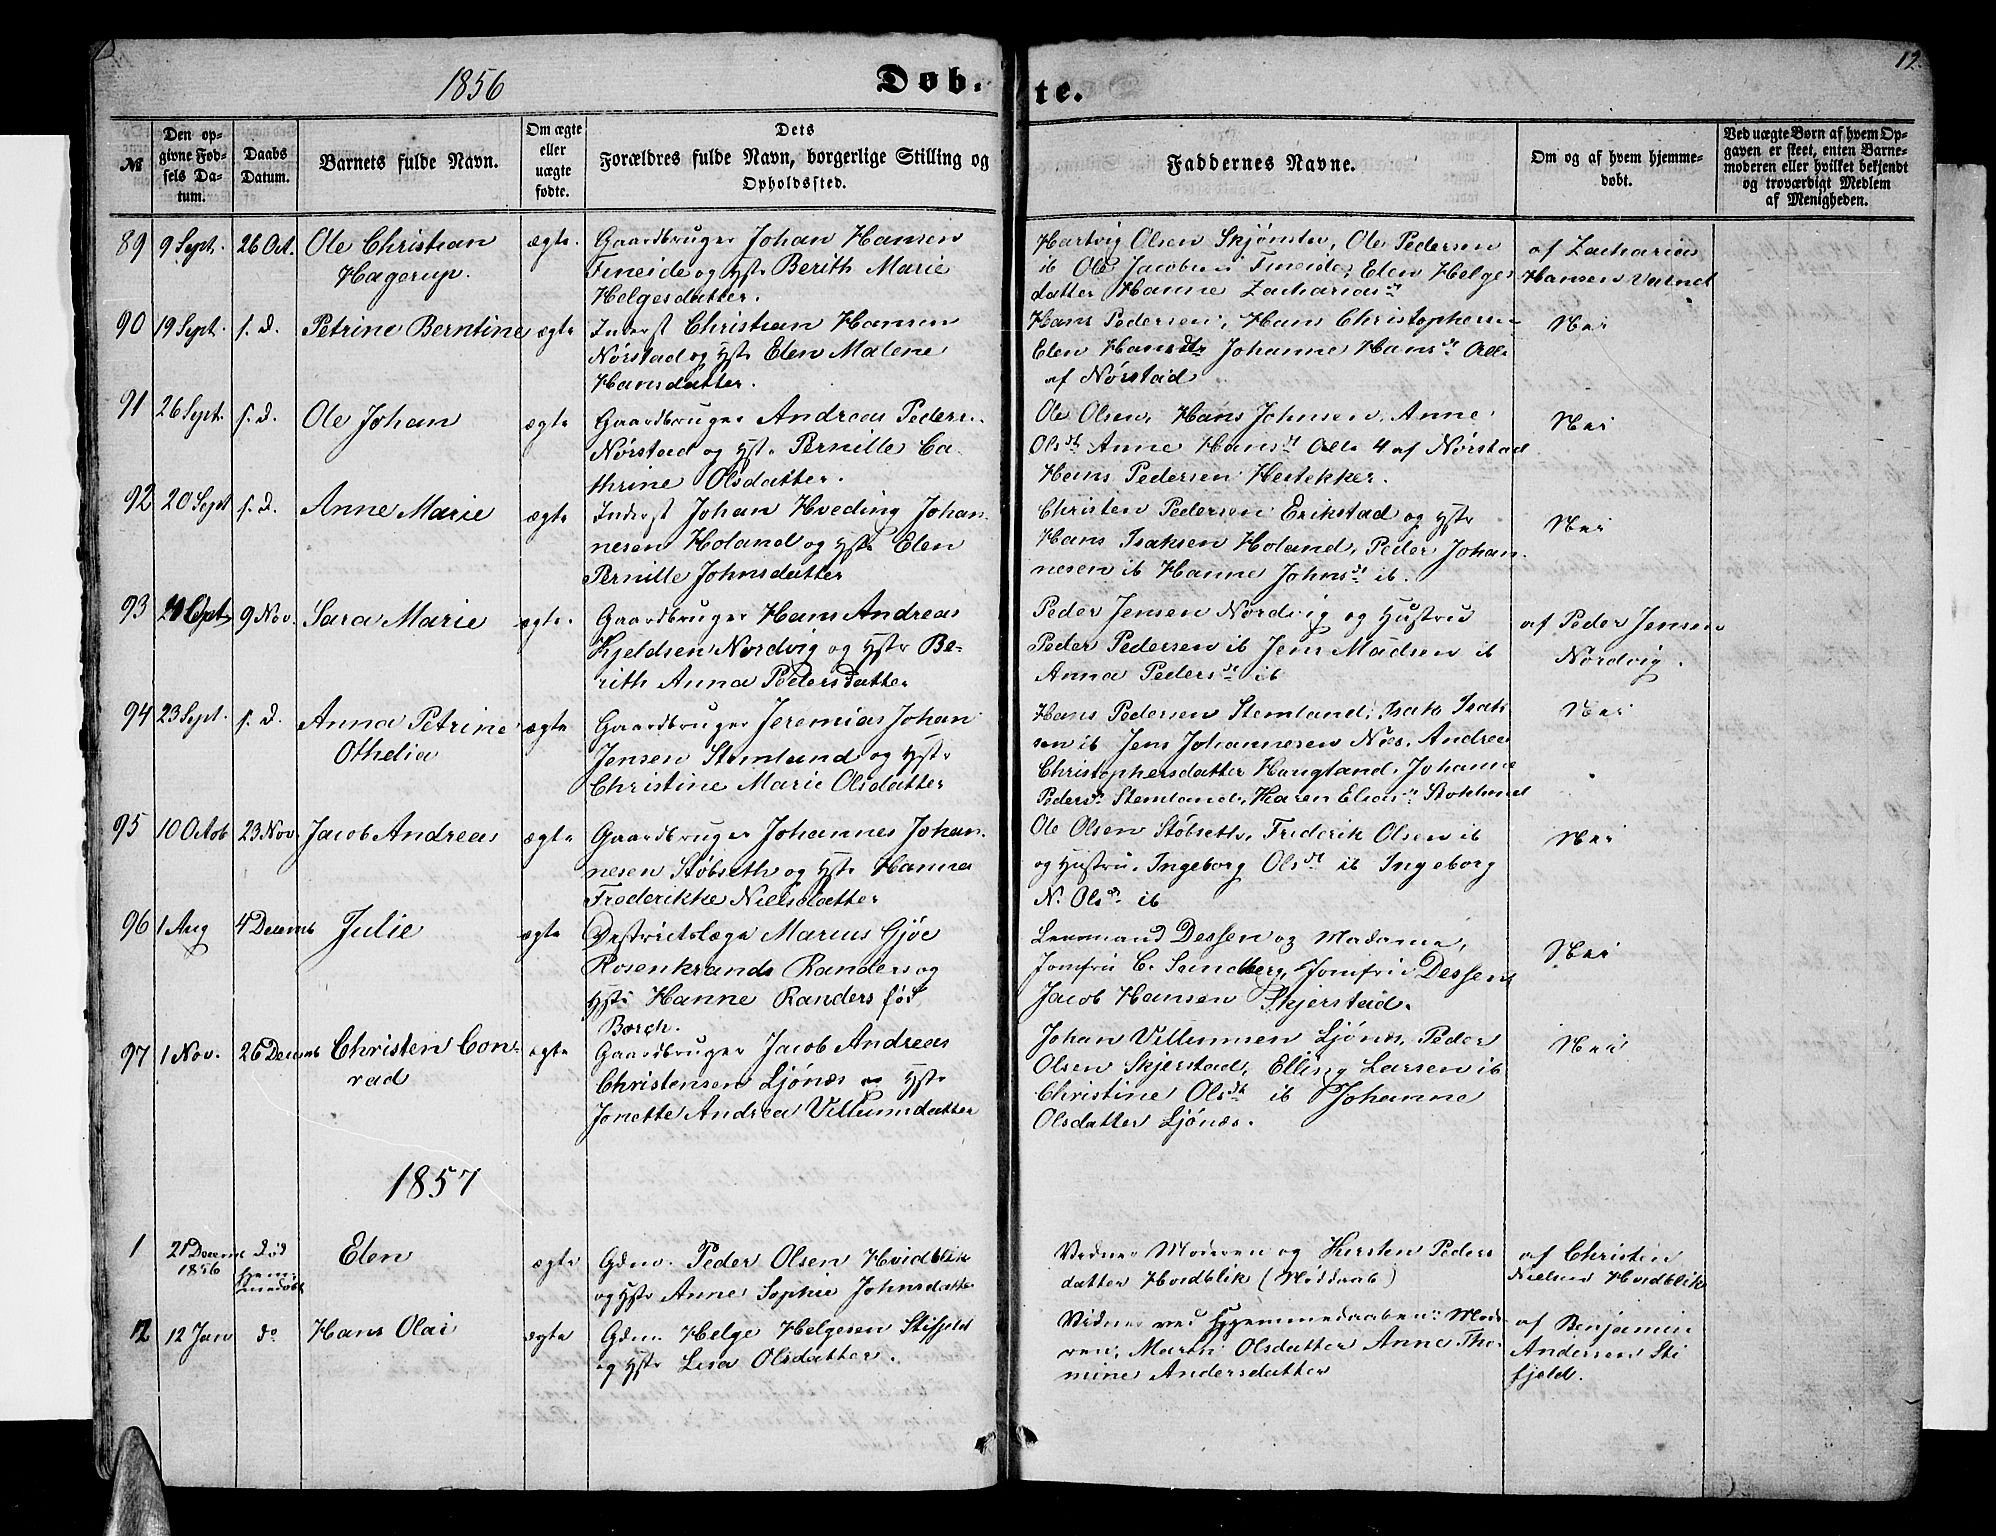 12
1856
Døb-
te.
№
Den op-
givne Fød-
sels Da-
tum.
Daabs
Datum.
Barnets fulde Navn.
Om ægte
eller
uægte
fødte.
Dets
Forældres fulde Navn, borgerlige Stilling og
Opholdssted.
Faddernes Navne.
Om og af hvem hjemme-
døbt.
Ved uægte Børn af hvem Op-
gaven er skeet, enten Barne-
moderen eller hvilket bekjendt
og troværdigt Medlem
af Menigheden.
89 9 Sept. 26 Oct. Ole Christian
Hagerup.
ægte.
Gaardbruger Johan Hansen
Fineide og Hst. Berith Marie
Helgesdatter.
Hartvig Olsen Skjønsta, Ole Pedersen
ib Ole Jacobsen Fineide, Elen Helges
datter Hanne Zacharias dt
af Zacharias
Hansen Vatnet
90 19 Sept. s. d. Petrine Berntine ægte
Inderst Christian Hansen
Nørstad og Hst. Elen Malene
Hansdatter.
Hans Pedersen, Hans Christophersen
Elen Hansdt Johanne Hans dt Alle
af Nørstad
Nei
91 26 Sept. s. d. Ole Johan ægte
Gaardbruger Andreas Peders.
Nørstad og Hst. Pernille Ca-
thrine Olsdatter.
Ole Olsen, Hans Johnsen, Anne
Olsdt Anne Hans dt Alle 4 af Nørstad
Hans Pedersen Hestekker.
Nei
92 20 Sept s. d. Anne Marie ægte
Inderst Johan Hveding Johan-
nesen Holand og Hst. Elen
Pernille Johnsdatter
Christen Pedersen Erikstad og Hst.
Hans Isaksen Holand, Peder Johan-
nesen ib Hanne Johns dt ib.
Nei
93 9 Nov. Sara Marie ægte.
Gaardbruger Hans Andreas
Kjeldsen Nordvig og Hst. Be-
rith Anna Pedersdatter
Peder Jensen Nordvig og Hustru
Peder Pedersen ib Jens Madsen ib
Anna Peders dt ib
af Peder Jensen
Nordvig.
94 23 Sept. s. d. Anna Petrine
Othelia
ægte
Gaardbruger Jeremias Johan
Jensen Stemland og Hst.
Christine Marie Olsdatter
Hans Pedersen Stemland, Isak Isak-
sen ib Jens Johannesen Næs, Andrea
Christophersdatter Haugland, Johanne
Peders dt Stemland, Karen Elias dt Stokland
Nei
95 10 Octob 23 Nov. Jacob Andreas ægte
Gaardbruger Johannes Johan-
nesen Støbseth og Hst. Hanna
Frederikke Nielsdatter
Ole Olsen Støbseth, Frederik Olsen ib
og Hustru, Ingeborg Ols dt ib Ingeborg
N. Ols dt ib
Nei
96 1 Aug 4 Decemb Julie ægte
Destriktslæge Marius Gjøe
Rosenkrands Randers og
Hst. Hanne Randers fød
Borch.
Lensmand Dessen og Madame,
Jomfru C. Sandberg, Jomfru Dessen
Jacob Hansen Skjerstad.
Nei
97 1 Nov. 26 Decemb Christen Con-
rad
ægte
Gaardbruger Jacob Andreas
Christensen Ljønæs og Hst.
Jonette Andrea Villumsdatter
Johan Villumsen Ljønæs, Peder
Olsen Skjerstad, Elling Larsen ib
Christine Ols dt ib Johanne
Olsdatter Ljønæs.
Nei
1857
1 21 Decem
1856
død
hjem-
medøbt
Elen ægte
Gdm. Peder Olsen Hvidblik
og Hst. Anne Sophie Johnsdatter
Vidner Moderen og Kirsten Peders
datter Hvidblik (Nøddaab)
af Christen
Nielsen Hvidblik
2 12 Jan do Hans Olai ægte
Gdm. Helge Helgesen Stifjeld
og Hst. Lisa Olsdatter.
Vidner ved Hjemmedaaben: Mode-
ren, Maren Olsdatter Anne Tho-
mine Andersdatter
af Benjamin
Andersen Sti
fjeld.